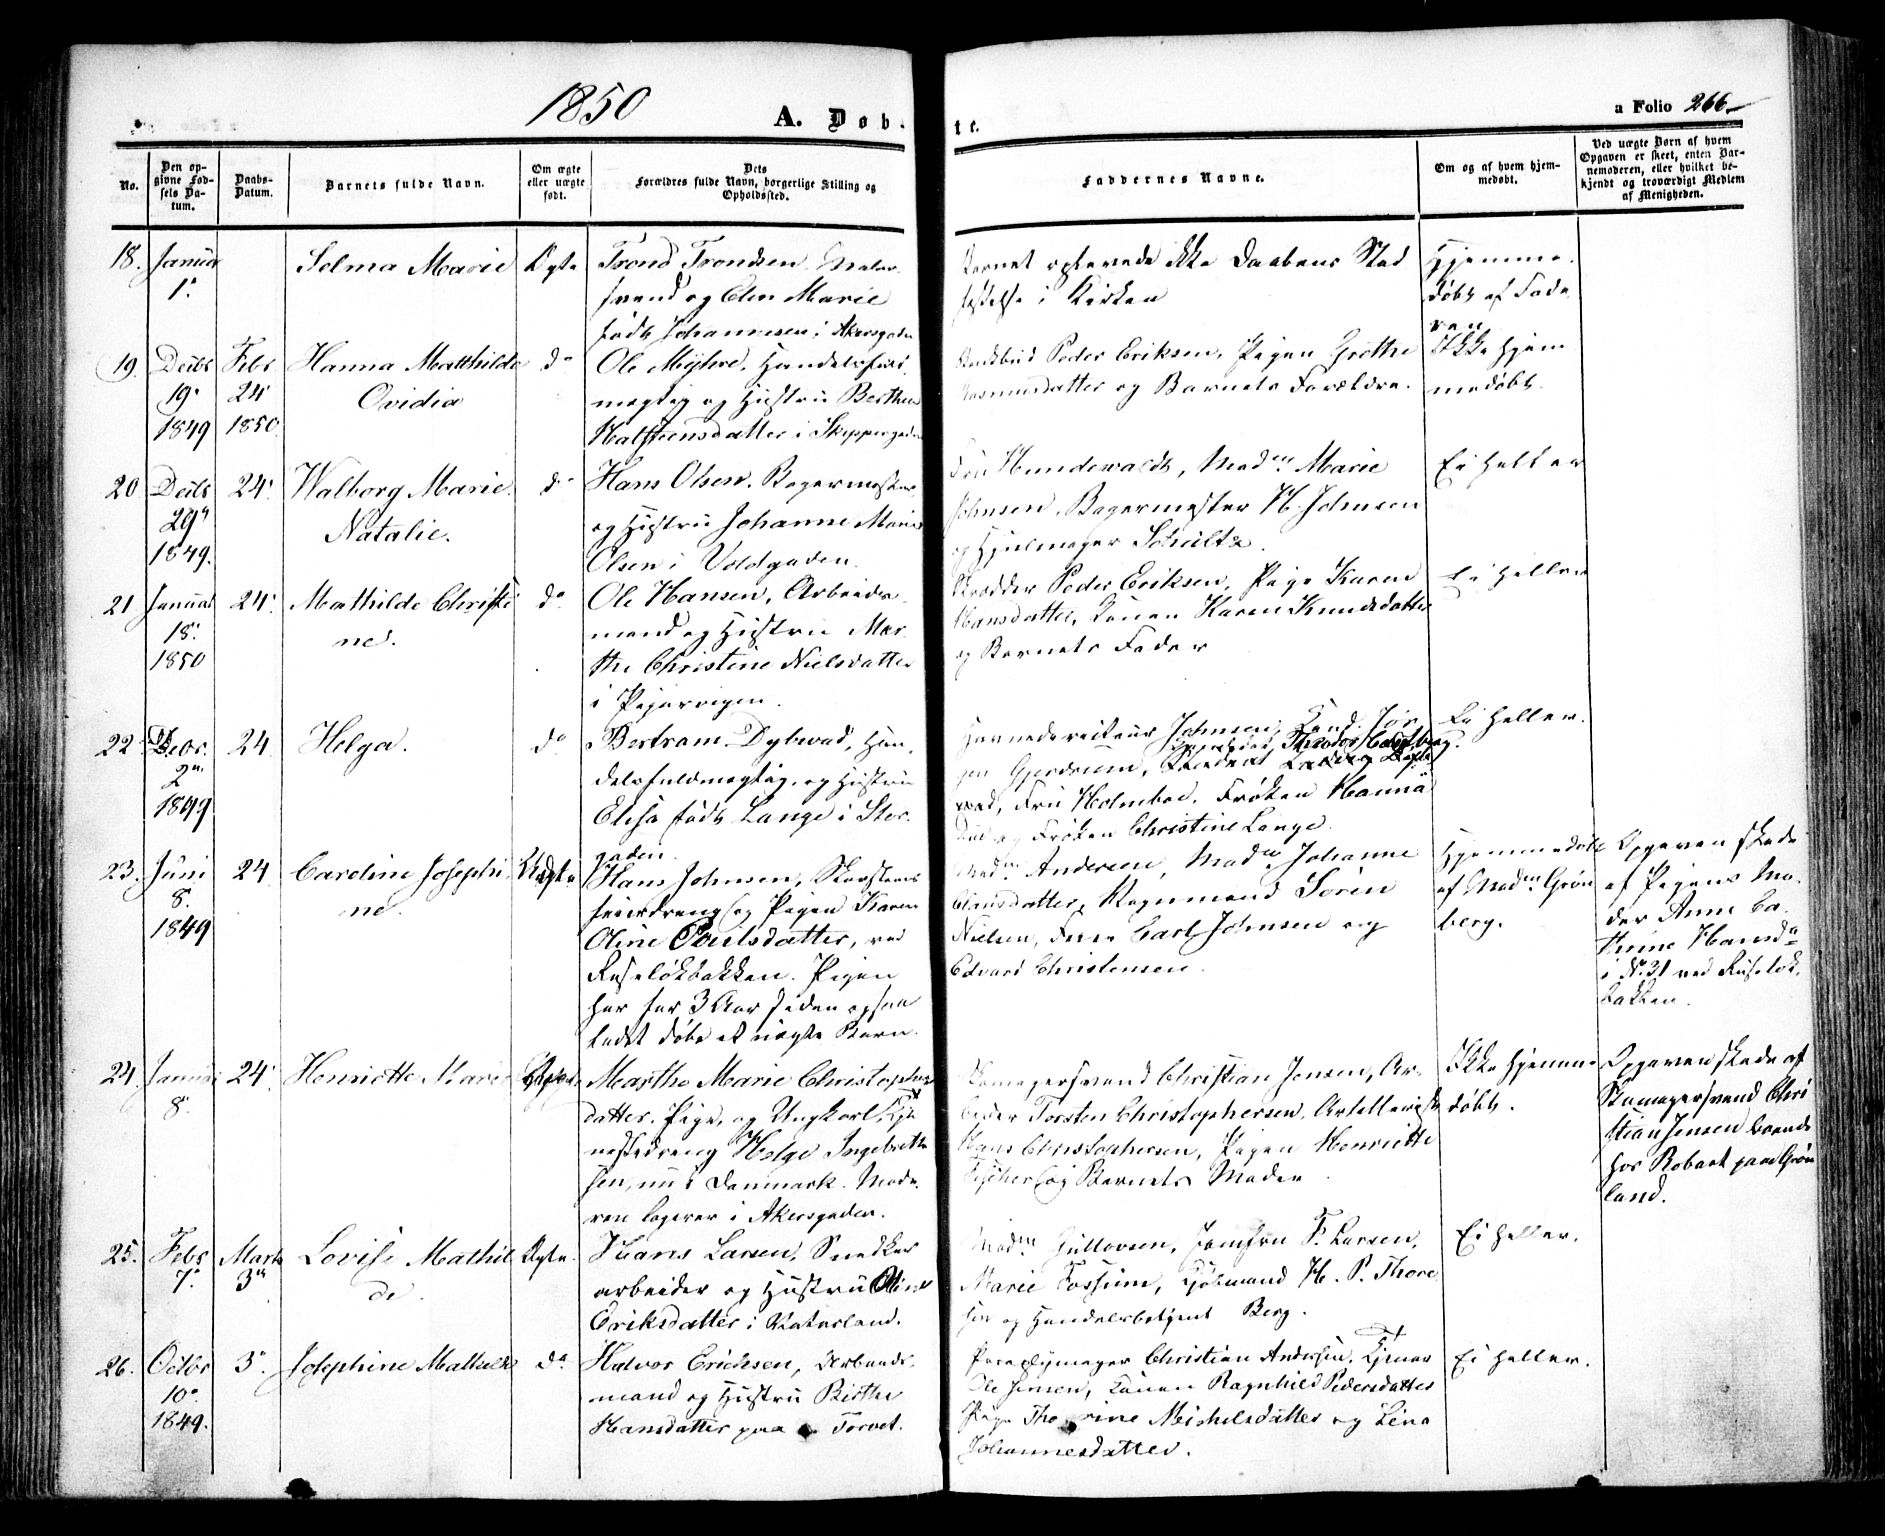 1850
A. Døb- te.
a Folio 266
No.
Den op-
givne Fød-
sels Da-
tum.
Daabs-
Datum.
Barnets fulde Navn.
Om ægte
eller uægte
født.
Dets
Forældres fulde Navn, borgerlige Stilling og
Opholdssted.
Faddernes Navne.
Om og af hvem hjem-
medøbt.
Ved uægte Børn af hvem
Opgaven er skeet, enten Bar-
nemoderen, eller hvilket be-
kjendt og troværdigt Medlem
af Menigheden.
18. Januar
1.
Selma Marie
Ægte
Trond Trondsen, Maler-
svend og Elen Marie
født Johannesen i Akersgaden
Barnet oplevede ikke Daabens Stad
fæstelse i Kirken
Hjemme-
døbt af Fade
ren
19. Decbr
19.
1849
Febr
24
1850.
Hanna Matthilde
Ovidia
do
Ole Myhre, Handelsfuld-
mægtig og Hustru Berthea
Halsteensdatter i Skippergaden
Peder Eriksen, Pigen Grethe
Rasmusdatter og Barnets Forældre.
Ikke hjem
medøbt.
20 Decbr
29
1849.
24.
Walborg Marie
Natalie.
do
Hans Olsen, Bagermester
og Hustru Johanne Marie
Olsen i Voldgaden.
Fru Hundewaldt, Madm Marie
Johnsen, Bagermester H. Johnsen
og Hjulmager Schultz.
Ei heller
21 Januar
18.
1850
24.
Mathilde Christi
ne.
do
Ole Hansen, Arbeids-
mand og Hustru Mar-
the Christine Nielsdatter
i Pipervigen.
Peder Eriksen, Pige Karen
Hansdatter, Konen Karen Knudsdatter
og Barnets Fader
Ei heller
22 Decbr.
2
1849
24
Helga.
do
Bertram Dybwad, Han-
delsfuldmægtig, og Hustru
Elisa født Lange i Stor-
gaden.
Johnsen, Cand. Jør
gen Gjerdrum, Student
wad, Fru Holmboe, Frøken Hanna
og Frøken Christine Lange.
Ei heller.
23. Juni
8.
1849
24
Caroline Josephi
ne.
Uægte
Hans Johnsen, Skorsteens-
feierdreng og Pigen Karen
Oline Poulsdatter, ved
Ruseløkbakken. Pigen
har for 3 Aar siden ogsaa
ladet døbe et uægte Barn.
Madm Andersen, Madm Johanne
datter, Sørin
Nielsen, Carl Johnsen og
Edvard Christensen.
Hjemmedøbt
af Madm Grøn
berg.
Opgaven skede
af Pigens Mo-
der Anne Ca-
thrine Hansdr
i No 31 ved Ruseløk-
bakken.
24. Januar
8.
24.
Henriette Marie
Uægte
Marthe Marie Christophers
datter, Pige, og Ungkarl, Tje
nestedreng Helge Ingebrett
sen, nu i Danmark. Mode
ren logerer i Akersgaden.
Skomagersvend Christian Jensen, Ar-
beider Torsten Christophersen, Artillerist
Hans Christophersen, Pigen Henriette
Fischer og Barnets Moder
Ikke hjemme
døbt.
Opgaven skede af
Skomagersvend Chri
stian Jensen boende
hos Robart paa Grøn
land.
25. Febr
7.
Marts
3
Lovise Mathil
de.
Ægte.
Hans Larsen, Snedker
arbeider og Hustru Oline
Eriksdatter i Vaterland.
Madm Gullovsen, Jomfru F. Larsen,
Marie Fossum, Kjøbmand H. P. Thore
sen og Handelsbetjent Berg.
Ei heller.
26. Octbr
10.
1849.
3.
Josephine Mathilde
do
Halvor Erichsen, Arbeids-
mand og Hustru Birthe
Hansdatter paa Torvet.
Paraplymager Christian Andersen, Tjener
Ole Jensen, Konen Ragnhild Pedersdatter
Pige Thorine Michelsdatter og Lina
Johannesdatter.
Ei heller.